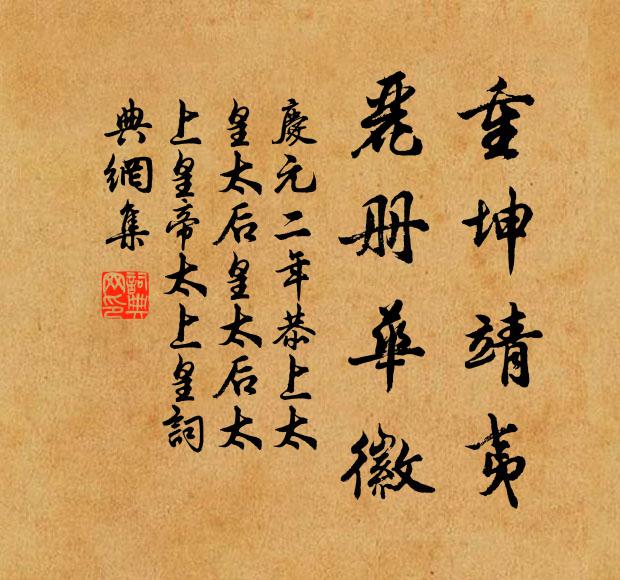 重坤靖夷
麗册華徽
慶元二年恭上太
皇太后皇太后太
上皇帝太上皇詞
典網集
詞典
网印